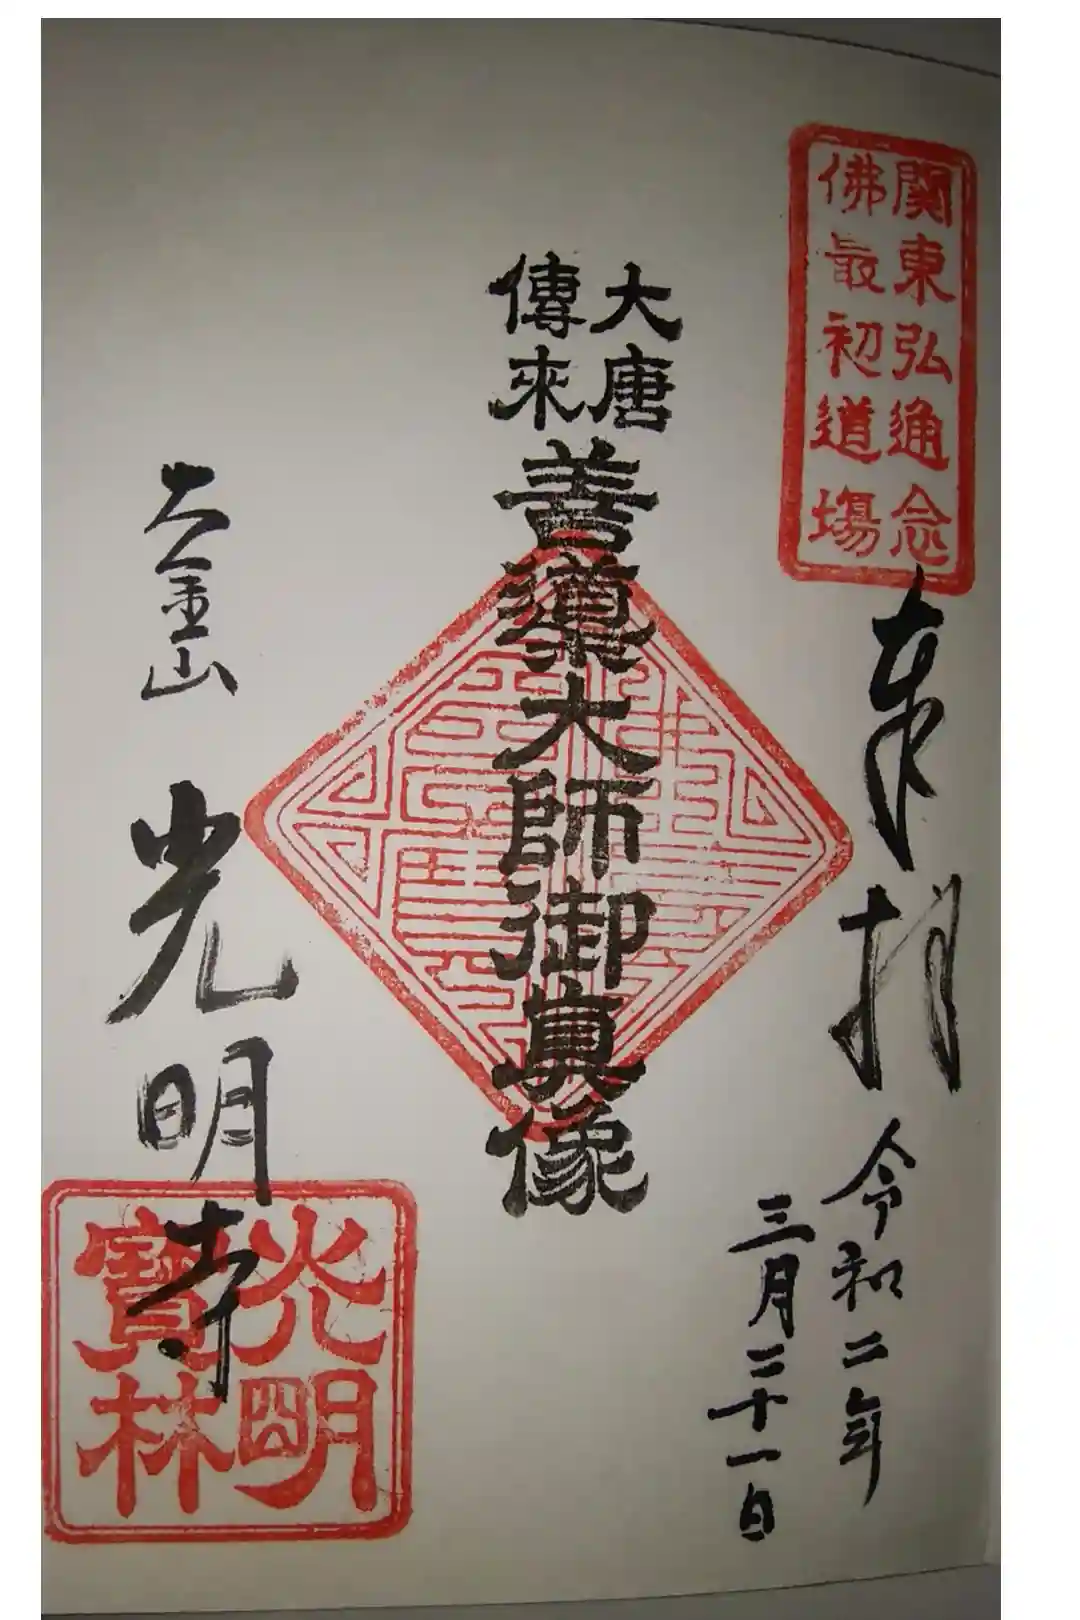 関東弘通念
佛最初道場
奉拝
令和二年
三月二十一日
大唐
傳來
善導大師御真像
大金山
光明寺
光明
寶林